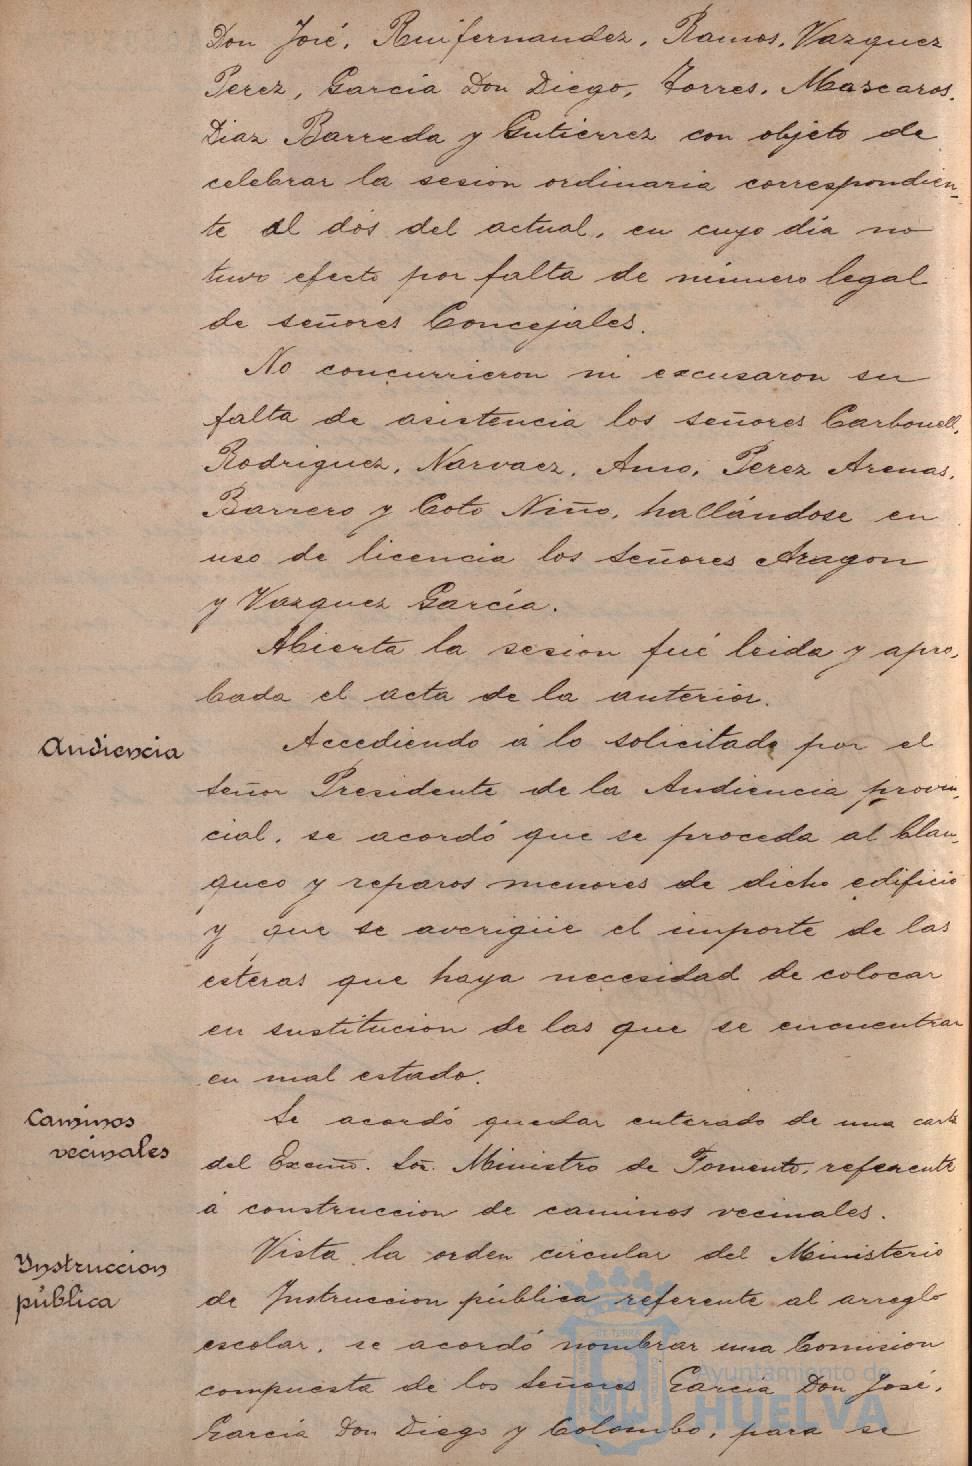 Don José, Ruifernandez, Ramos, Vazquez
Perez, Garcia Don Diego, Torres, Mascaros,
Diaz Barreda y Gutierrez con objeto de
celebrar la sesion ordinaria correspondien-
te al dos del actual, en cuyo dia no
tuvo efecto por falta de número legal
de señores Concejales.
No concurrieron ni excusaron su
falta de asistencia los señores Carbonell,
Rodriguez, Narvaez, Amo, Perez Arenas,
Barrero y Coto Niño, hallándose en
uso de licencia los señores Aragon
y Vazquez García.
Abierta la sesion fué leida y apro-
bada el acta de la anterior.
Audiencia
Accediendo á lo solicitado por el
señor Presidente de la Audiencia provin-
cial, se acordó que se proceda al blan-
queo y reparos menores de dicho edificio
y que se averigüe el importe de las
esteras que haya necesidad de colocar
en sustitucion de las que se encuentran
en mal estado.
Caminos
vecinales
Se acordó quedar enterado de una carta
del Excmo. Sor. Ministro de Fomento, referente
á construccion de caminos vecinales.
Instruccion
pública
Vista la orden circular del Ministerio
de Instruccion pública referente al arreglo
escolar, se acordó nombrar una Comision
compuesta de los Señores Garcia Don José,
Garcia Don Diego y Colombo, para se
Ayuntamiento de
HUELVA